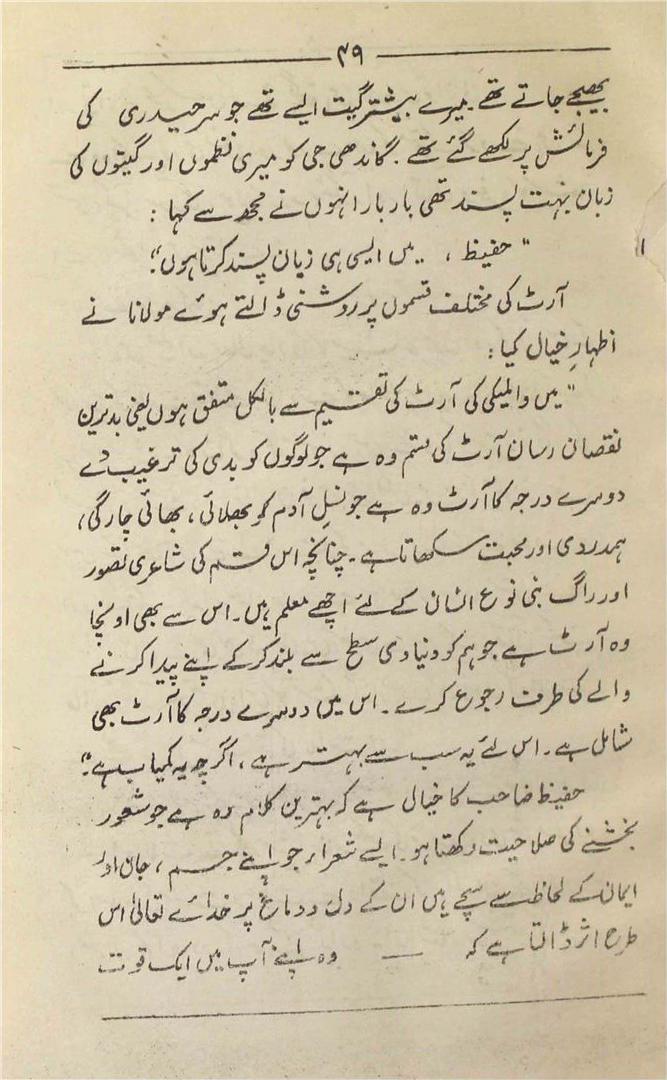 ۴۹
بھیجے جاتے تھے۔ میرے بیشتر گیت ایسے تھے جو سر حیدری کی
فرمائش پر لکھے گئے تھے۔ گاندھی جی کو میری نظموں اور گیتوں کی
زبان بہت پسند تھی بار بار انہوں نے مجھ سے کہا :
" حفیظ ، میں ایسی ہی زبان پسند کرتا ہوں"۔
آرٹ کی مختلف قسموں پر روشنی ڈالتے ہوئے مولانا نے
اظہارِ خیال کیا :
"میں والمیکی کی آرٹ کی تقسیم سے بالکل متفق ہوں یعنی بدترین
نقصان رسان آرٹ کی قسم وہ ہے جو لوگوں کو بدی کی ترغیب دے
دوسرے درجہ کا آرٹ وہ ہے جو نسلِ آدم کو بھلائی ، بھائی چارگی ،
ہمدردی اور محبت سکھاتا ہے۔ چنانچہ اس قسم کی شاعری تصور
اور راگ بنی نوع انسان کے لئے اچھے معلم ہیں۔ اس سے بھی اونچا
وہ آرٹ ہے جو ہم کو دنیاوی سطح سے بلند کرکے اپنے پیدا کرنے
والے کی طرف رجوع کرے۔ اس میں دوسرے درجہ کا آرٹ بھی
شامل ہے۔ اس لئے یہ سب سے بہتر ہے ، اگرچہ یہ کمیاب ہے"۔
حفیظ صاحب کا خیال ہے کہ بہترین کلام وہ ہے جو شعور
بخشنے کی صلاحیت رکھتا ہو۔ ایسے شعراء جو اپنے جسم ، جان اور
ایمان کے لحاظ سے سچے ہیں ان کے دل و دماغ پر خدائے تعالیٰ اس
طرح اثر ڈالتا ہے کہ — وہ اپنے آپ میں ایک قوت